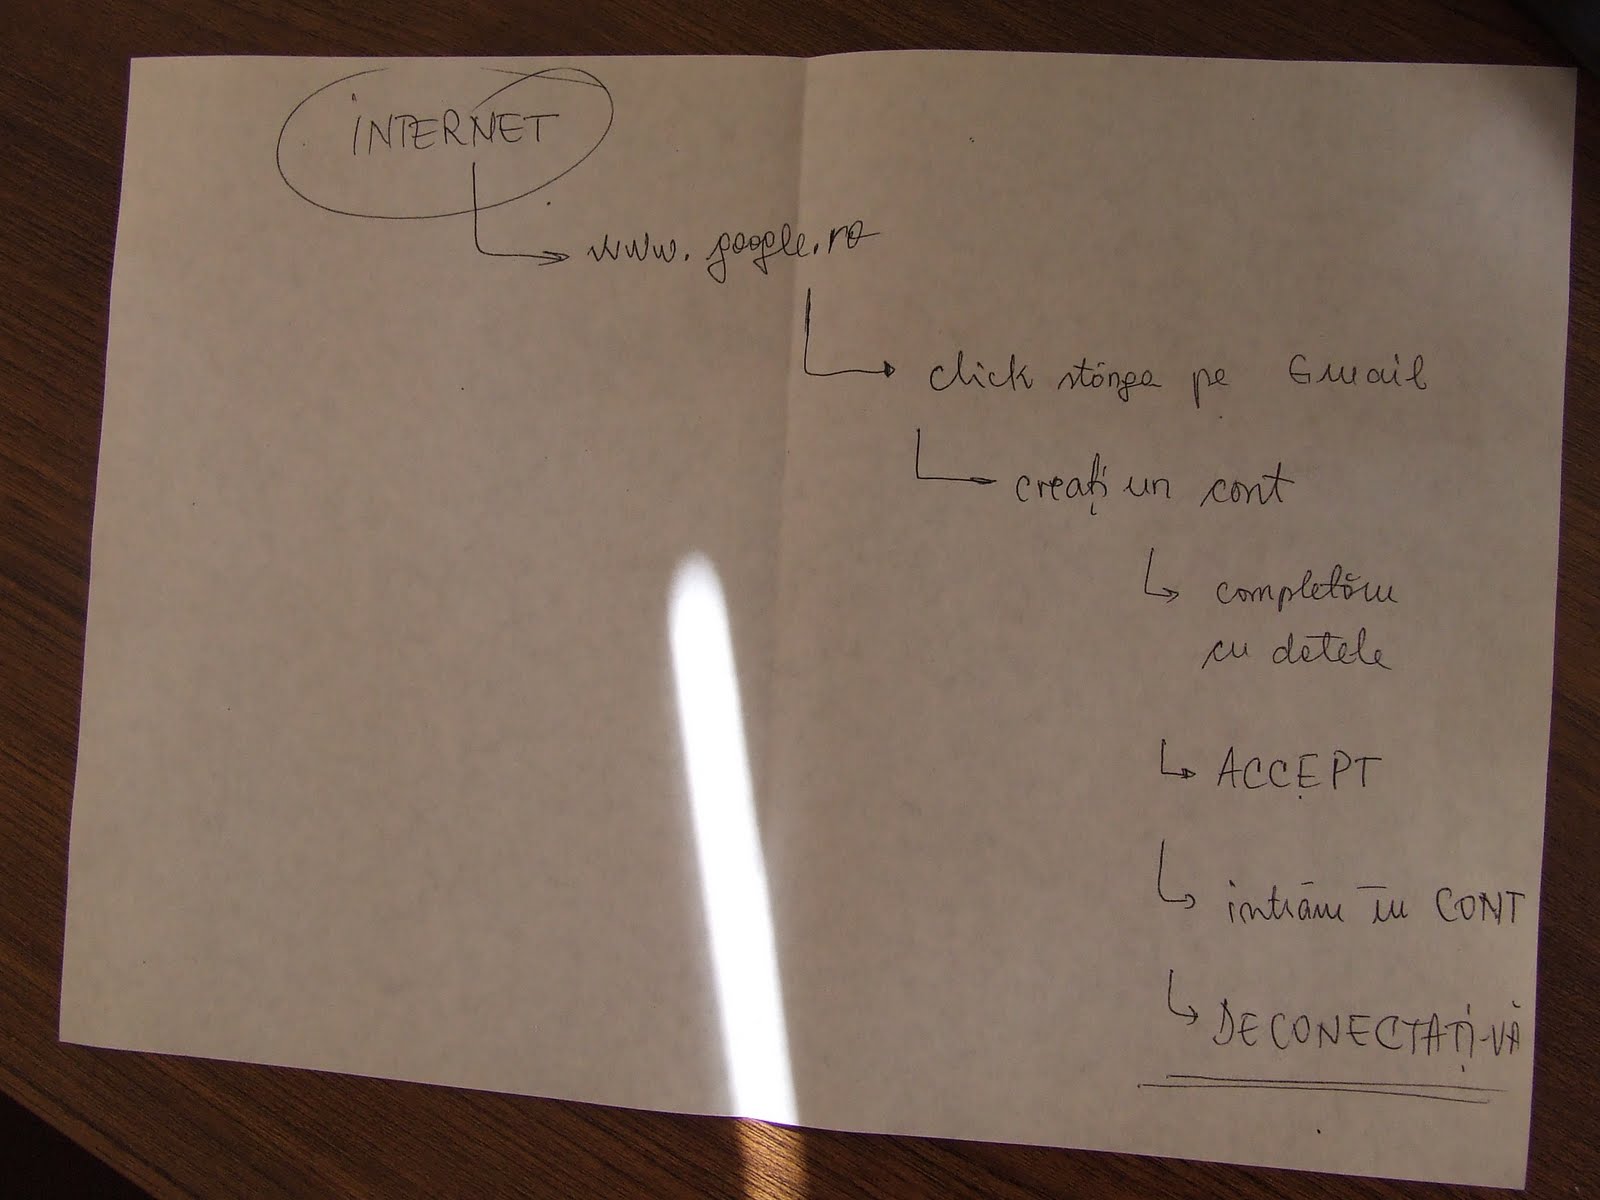 INTERNET
www.google.ro
click stânga pe Gmail
creați un cont
completăm
cu datele
ACCEPT
intrăm în CONT
DECONECTAȚI-VĂ